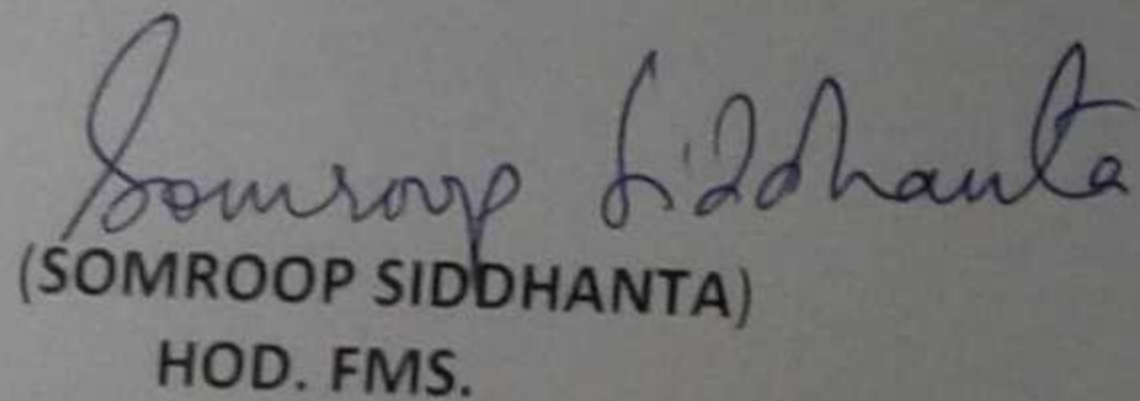 Somroop Siddhanta
(SOMROOP SIDDHANTA)
HOD. FMS.